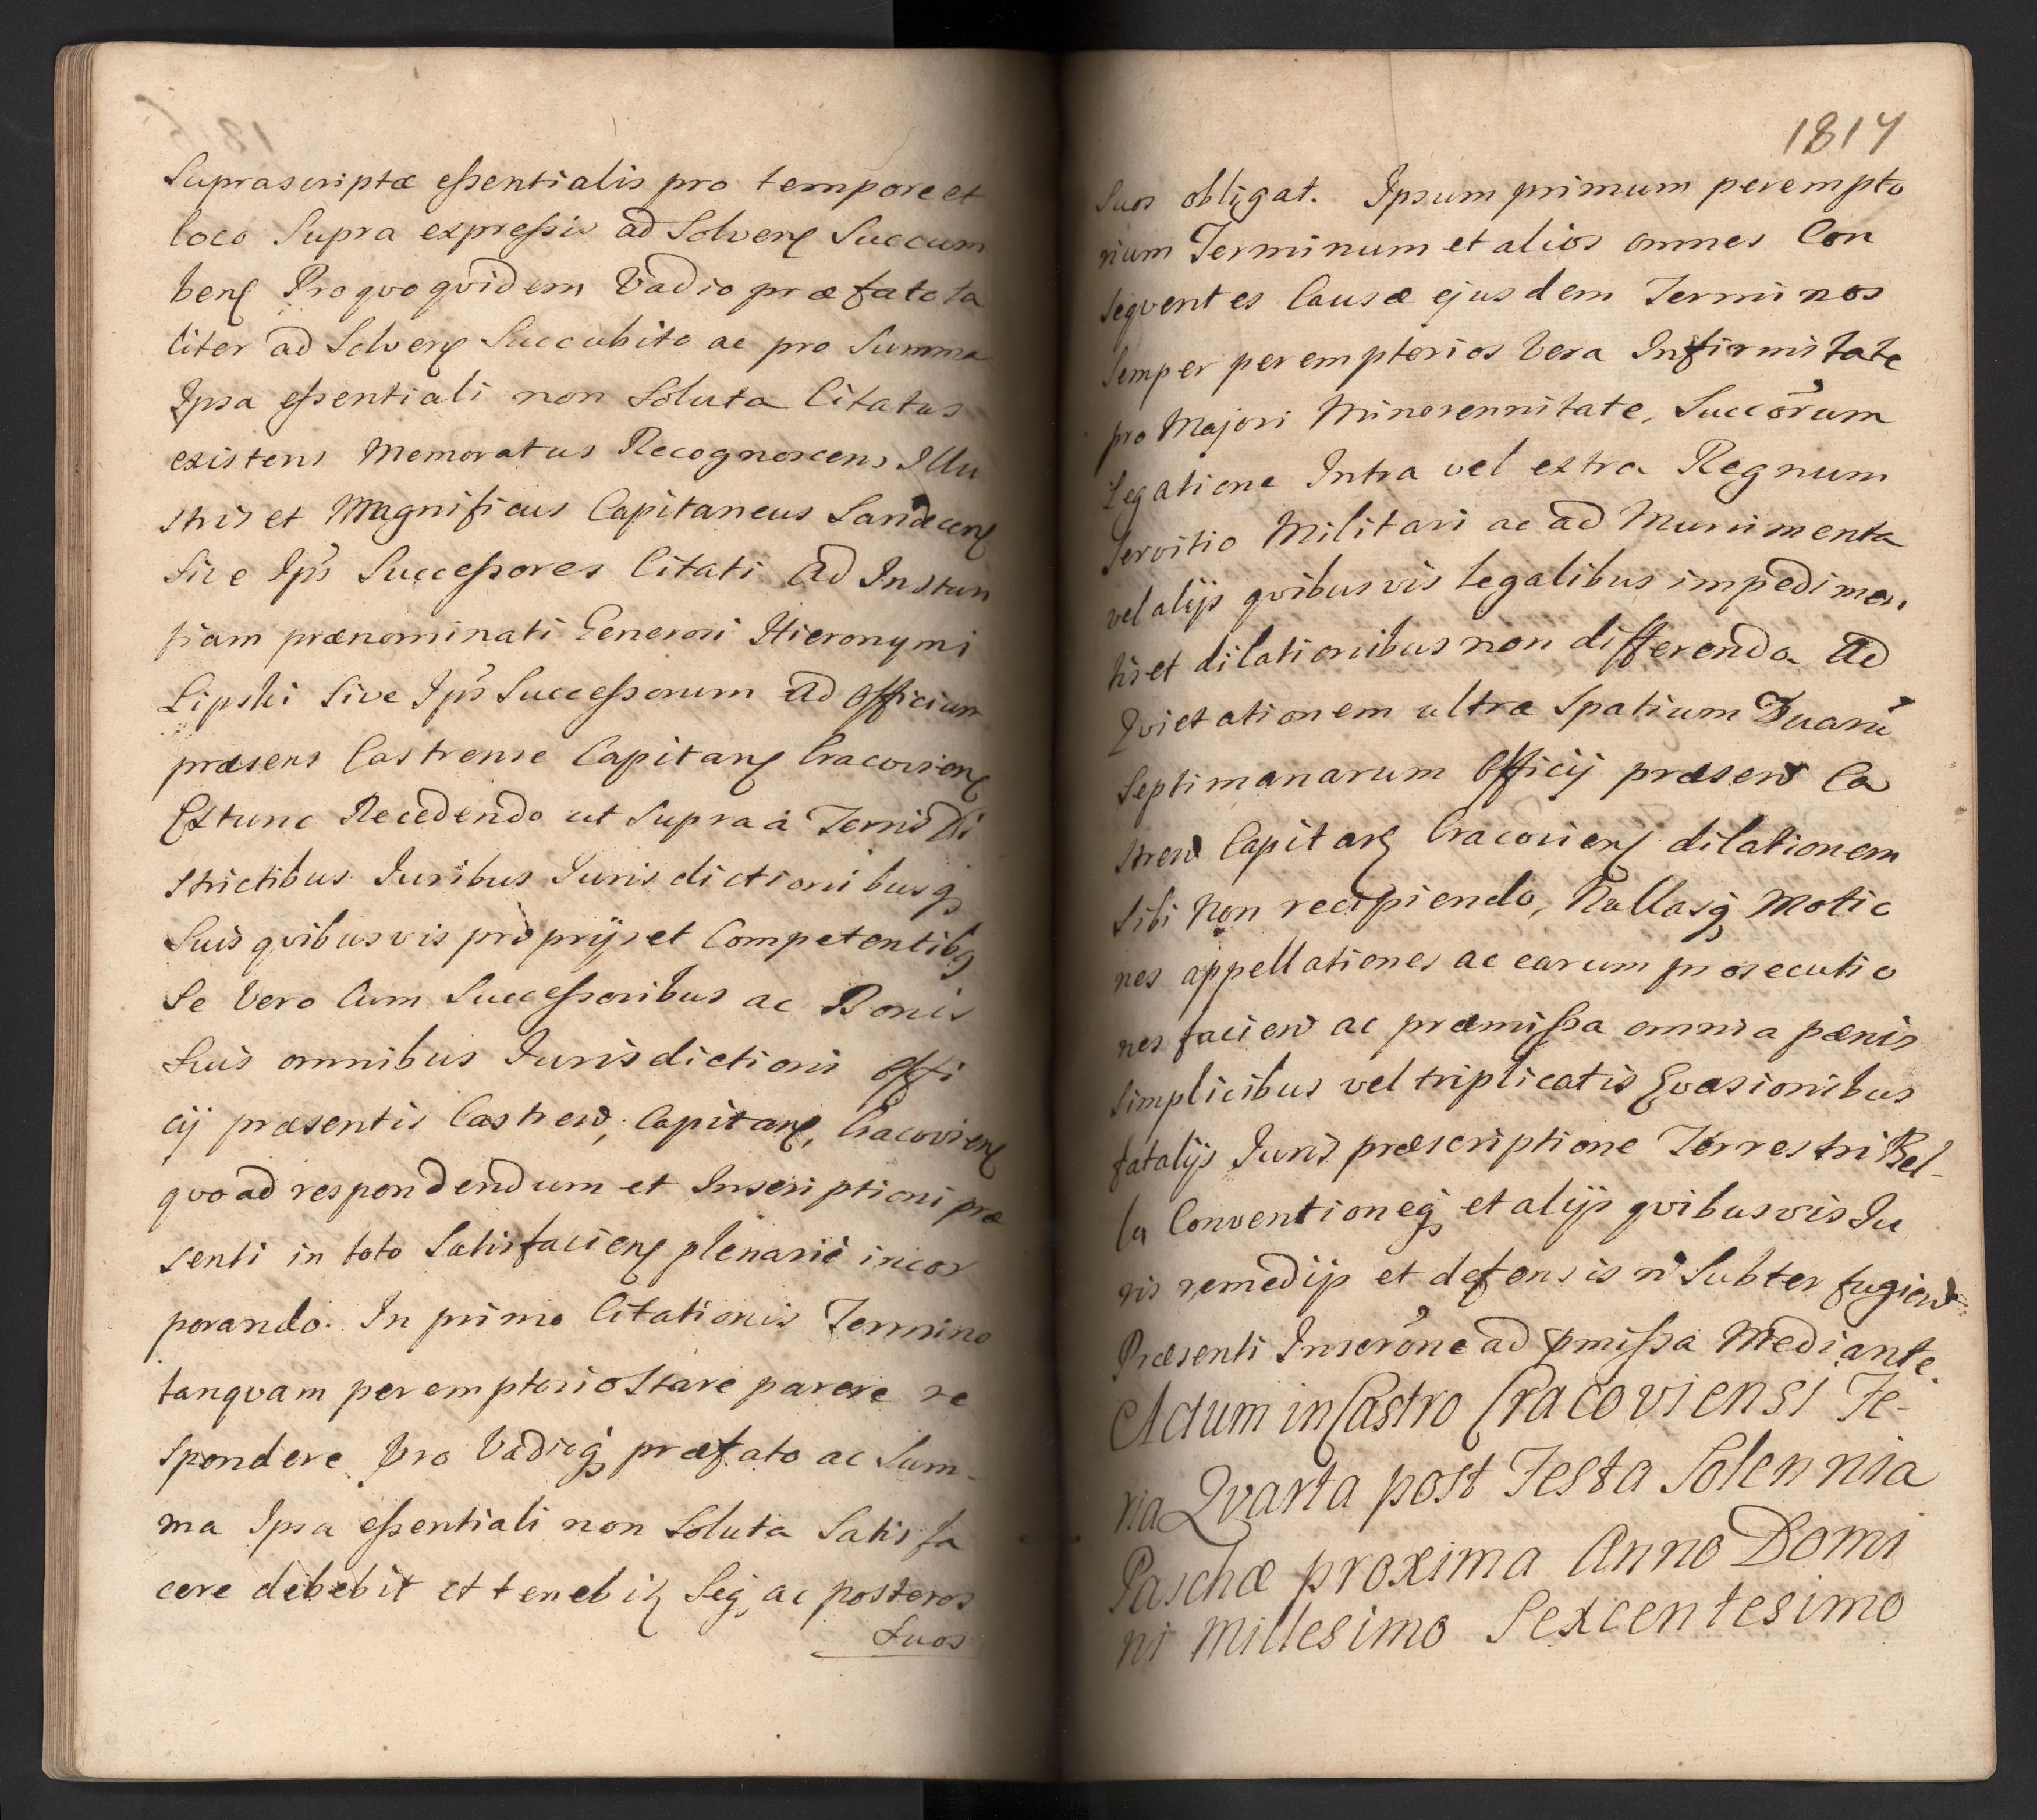 Suprascriptæ essentialis pro tempore et
loco Supra expressis ad Solven Succum
ben Pro qvo qvidem Vadio præfato ta
liter ad Solven Succubito ac pro Summa
Ipsa essentiali non Soluta Citatus
existens Memoratus Recognoscens Illu
stris et Magnificus Capitaneus Sandecen
Sive Ips Successores Citati Ad Instan
tiam prænominati Generosi Hieronymi
Lipski Sive Ips Successorum Ad Officium
præsens Castrense Capitan Cracovien
Extunc Recedendo ut Supra à Terris Di
strictibus Juribus Jurisdictionibusq
Suis qvibusvis proprijs et Competentibq
Se Vero Cum Successoribus ac Bonis
Suis omnibus Jurisdictioni Offi
cij præsentis Castren, Capitan, Cracovien
qvo ad respondendum et Inscriptioni præ
senti in toto Satisfacien plenariè incor
porando. In primo Citationis Termino
tanqvam peremptorio Stare parere re
spondere Pro Vadioq præfato ac Sum-
ma Ipsa essentiali non Soluta Satisfa
cere debebit et tenebit Seq ac posteros
Suos
1817
Suos obligat. Ipsum primum perempto
rium Terminum et alios omnes Con
seqventes Causæ ejusdem Terminos
Semper peremptorios Vera Infirmitate
pro Majori Minorennitate, Succorum
Legatione Intra vel extra Regnum
Servitio Militari ac ad Munimenta
vel alijs qvibusvis legalibus impedimen
tis et dilationibus non differendo Ad
Qvietationem ultra Spatium Duarũ
Septimanarum Officij præsen Ca
stren Capitan Cracovien dilationem
Sibi Non recipiendo, Nullasq Motio
nes appellationes ac earum prosecutio
nes facien ac præmissa omnia pænis
Simplicibus vel triplicatis Evasionibus
fatalijs Juris præscriptione Terrestri Bel-
la Conventioneq et alijs qvibusvis Ju
ris remedijs et defensis ñ Subterfugien
Præsenti Inscrõne ad pmissa Mediante.
Actum in Castro Cracoviensi Fe-
ria Qvarta post Festa Solennia
Paschæ proxima Anno Domi
ni Millesimo Sexcentesimo